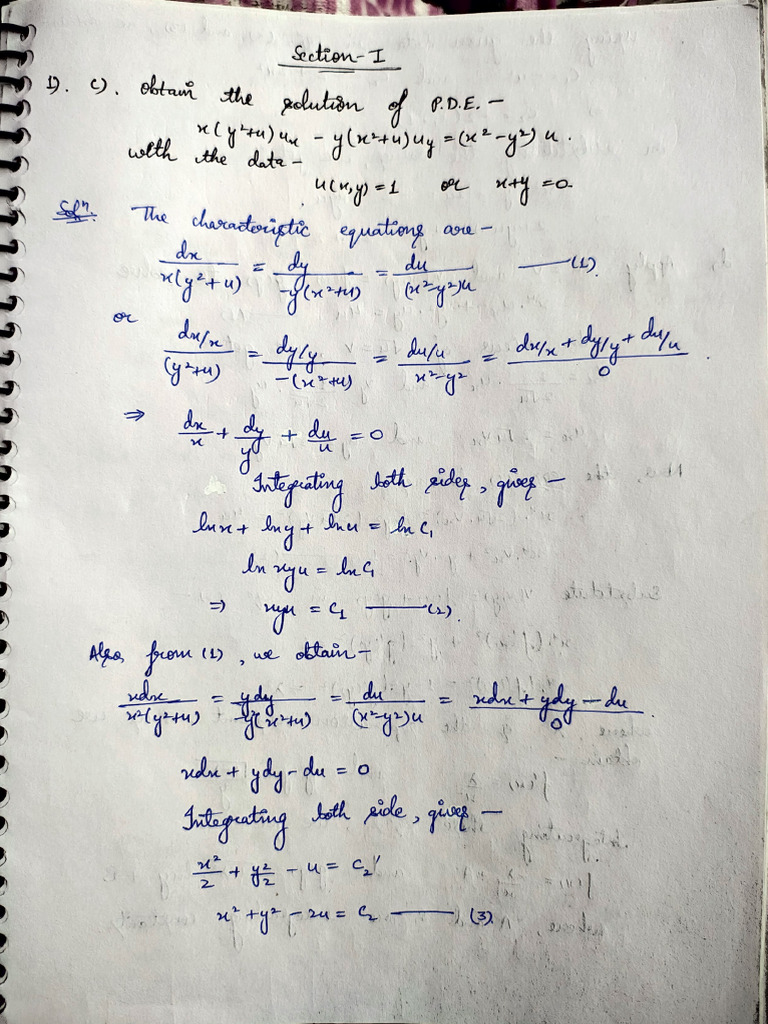 Section-I
1). c). obtain the solution of P.D.E. –
x(y²+u)uₓ - y(x²+u)u_y = (x²-y²) u.
with the data –
u(x,y)=1 or x+y=0.
Solⁿ. The characteristic equations are –
dx/x(y²+u) = dy/-y(x²+u) = du/(x²-y²)u —(1).
or
dx/x/(y²+u) = dy/y/-(x²+u) = du/u/x²-y² = dx/x + dy/y + du/u/0.
⇒ dx/x + dy/y + du/u = 0
Integrating both sides, gives –
lnx + lny + lnu = ln C₁
ln xyu = ln C₁
⇒ xyu = C₁ —(2).
Also, from (1), we obtain –
xdx/x²(y²+u) = ydy/-y²(x²+u) = du/(x²-y²)u = xdx + ydy - du/0.
xdx + ydy - du = 0
Integrating both side, gives –
x²/2 + y²/2 - u = C₂'
x² + y² - 2u = C₂ —(3)